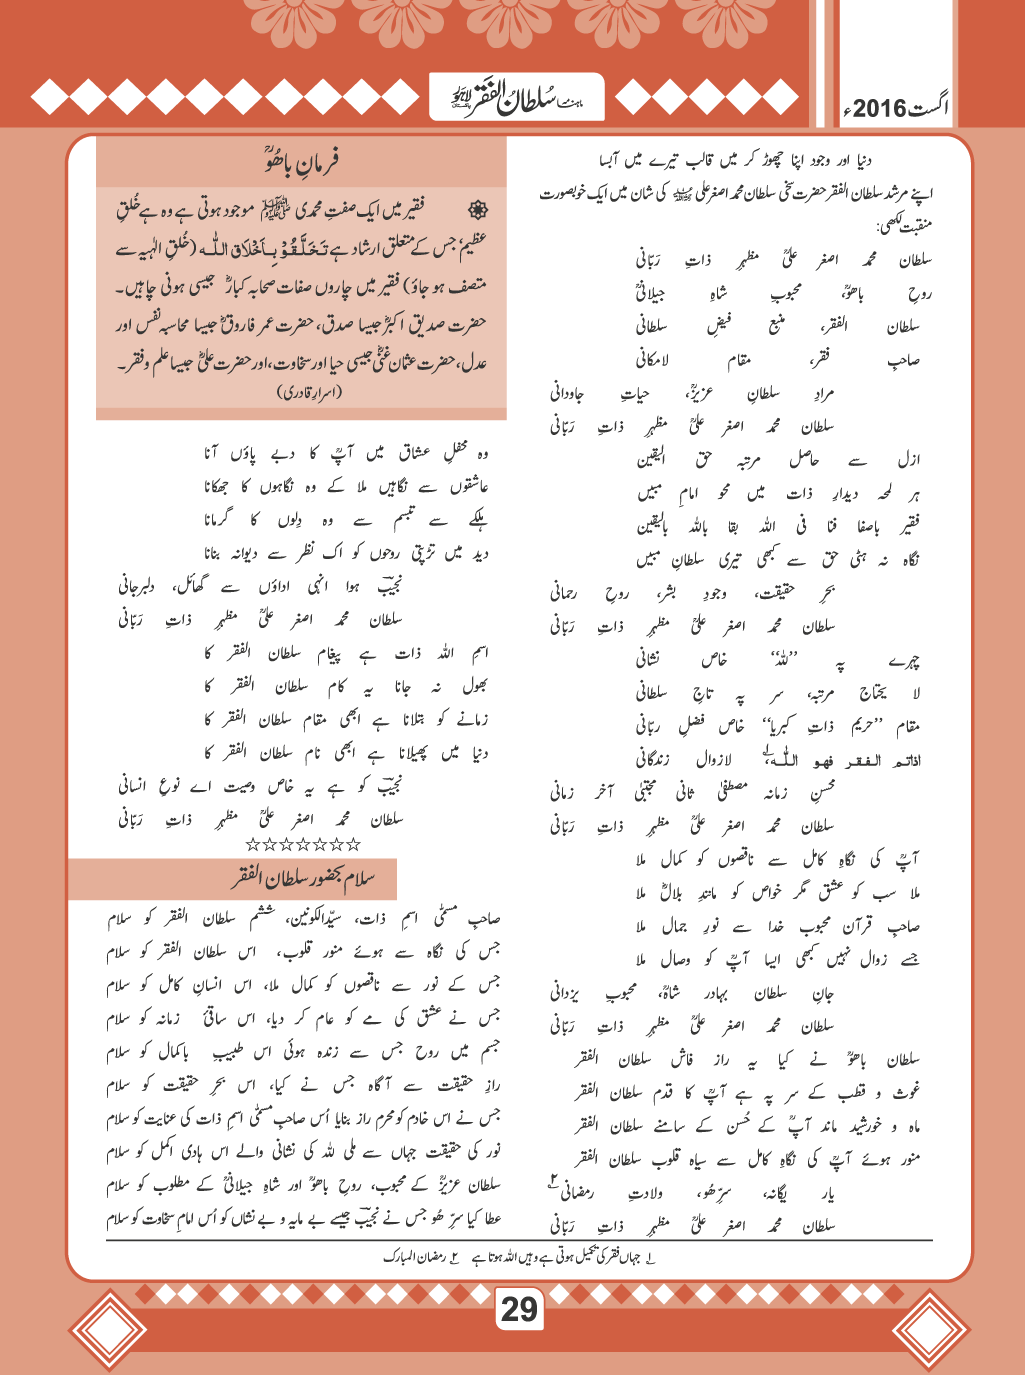 اگست 2016ء
ماہنامہ سلطان الفقر لاہور پاکستان
دنیا اور وجود اپنا چھوڑ کر میں قالب تیرے میں آبسا
اپنے مرشد سلطان الفقر حضرت سخی سلطان محمد اصغر علی کی شان میں ایک خوبصورت
منقبت لکھی:
سلطان محمد اصغر علیؒ مظہرِ ذاتِ رَبّانی
روحِ باھوؒ، محبوبِ شاہِ جیلانیؒ
سلطان الفقر، منبعِ فیضِ سلطانی
صاحبِ فقر، مقام لامکانی
مرادِ سلطانِ عزیزؒ، حیاتِ جاودانی
سلطان محمد اصغر علیؒ مظہرِ ذاتِ رَبّانی
ازل سے حاصل مرتبہ حق الیقین
ہر لمحہ دیدارِ ذات میں محو امامِ مبیں
فقیر باصفا فنا فی اللہ بقا باللہ بالیقین
نگاہ نہ ہٹی حق سے کبھی تیری سلطانِ مبیں
بحرِ حقیقت، وجودِ بشر، روحِ رحمانی
سلطان محمد اصغر علیؒ مظہرِ ذاتِ رَبّانی
چہرے پہ ’’للہ‘‘ خاص نشانی
لا یحتاج مرتبہ، سر پہ تاجِ سلطانی
مقام ’’حریم ذاتِ کبریا‘‘ خاص فضلِ ربّانی
اذاتم الفقر فھو اللّٰہ۱؎، لازوال زندگانی
محسنِ زمانہ مصطفیٰ ثانی مجتبیٰ آخر زمانی
سلطان محمد اصغر علیؒ مظہرِ ذاتِ رَبّانی
آپؒ کی نگاہِ کامل سے ناقصوں کو کمال ملا
ملا سب کو عشق مگر خواص کو مانندِ بلالؓ ملا
صاحبِ قرآن محبوبِ خدا سے نورِ جمال ملا
جسے زوال نہیں کبھی ایسا آپؒ کو وصال ملا
جانِ سلطان بہادر شاہؒ، محبوبِ یزدانی
سلطان محمد اصغر علیؒ مظہرِ ذاتِ رَبّانی
سلطان باھوؒ نے کیا یہ راز فاش سلطان الفقر
غوث و قطب کے سر پہ ہے آپؒ کا قدم سلطان الفقر
ماہ و خورشید ماند آپؒ کے حُسن کے سامنے سلطان الفقر
منور ہوئے آپؒ کی نگاہِ کامل سے سیاہ قلوب سلطان الفقر
یار یگانہ، سرِّھُو، ولادتِ رمضانی۲؎
سلطان محمد اصغر علیؒ مظہرِ ذاتِ رَبّانی
فرمانِ باھُوؒ
فقیر میں ایک صفتِ محمدی ﷺ موجود ہوتی ہے وہ ہے خُلقِ
عظیم‘ جس کے متعلق ارشاد ہے تَخَلَّقُوْ بِاَخْلَاقِ اللّٰہ (خُلقِ الٰہیہ سے
متصف ہو جاؤ) فقیر میں چاروں صفات صحابہ کبارؓ جیسی ہونی چاہیں۔
حضرت صدیق اکبرؓ جیسا صدق، حضرت عمر فاروقؓ جیسا محاسبہ نفس اور
عدل، حضرت عثمان غنیؓ جیسی حیا اور سخاوت، اور حضرت علیؓ جیسا علم و فقر۔
(اسرارِ قادری)
وہ محفلِ عشاق میں آپؒ کا دبے پاؤں آنا
عاشقوں سے نگاہیں ملا کے وہ نگاہوں کا جھکانا
ہلکے سے تبسم سے وہ دِلوں کا گرمانا
دید میں تڑپتی روحوں کو اک نظر سے دیوانہ بنانا
نجیبؔ ہوا انہی اداؤں سے گھائل، دلبرِجانی
سلطان محمد اصغر علیؒ مظہرِ ذاتِ رَبّانی
اسمِ اللہ ذات ہے پیغام سلطان الفقر کا
بھول نہ جانا یہ کام سلطان الفقر کا
زمانے کو بتلانا ہے ابھی مقام سلطان الفقر کا
دنیا میں پھیلانا ہے ابھی نام سلطان الفقر کا
نجیبؔ کو ہے یہ خاص وصیت اے نوعِ انسانی
سلطان محمد اصغر علیؒ مظہرِ ذاتِ رَبّانی
☆☆☆☆☆☆☆
سلام بحضور سلطان الفقر
صاحبِ مسمّٰی اسمِ ذات، سیّدالکونین، ششم سلطان الفقر کو سلام
جس کی نگاہ سے ہوئے منور قلوب، اس سلطان الفقر کو سلام
جس کے نور سے ناقصوں کو کمال ملا، اس انسانِ کامل کو سلام
جس نے عشق کی مے کو عام کر دیا، اس ساقیٔ زمانہ کو سلام
جسم میں روح جس سے زندہ ہوئی اس طبیبِ باکمال کو سلام
رازِ حقیقت سے آگاہ جس نے کیا، اس بحرِ حقیقت کو سلام
جس نے اس خادم کو محرمِ راز بنایا اُس صاحبِ مسمّٰی اسمِ ذات کی عنایت کو سلام
نور کی حقیقت جہاں سے ملی للہ کی نشانی والے اس ہادی اکمل کو سلام
سلطان عزیزؒ کے محبوب، روحِ باھوؒ اور شاہِ جیلانیؒ کے مطلوب کو سلام
عطا کیا سرِّ ھُو جس نے نجیبؔ جیسے بے مایہ و بے نشاں کو اُس امامِ سخاوت کو سلام
۱؎ جہاں فقر کی تکمیل ہوتی ہے وہیں اللہ ہوتا ہے ۲؎ رمضان المبارک
29